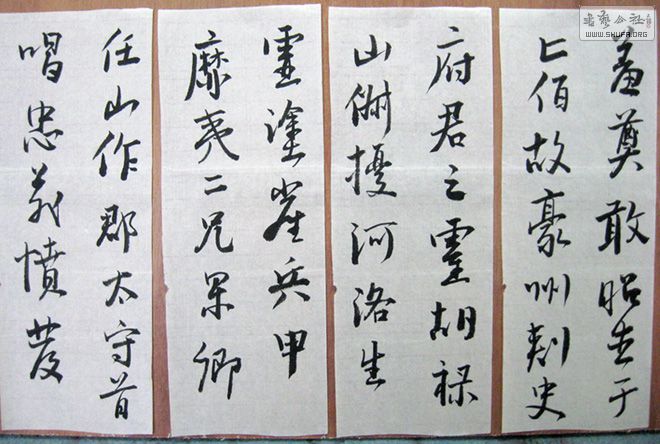 羞奠敢昭告于
亡伯故豪州刾史
府君之靈胡禄
山俶擾河洛生
靈塗兵甲
靡夷二兄杲卿
任山作郡太守首
唱忠義憤發
書藝公社
WWW.SHUFA.ORG